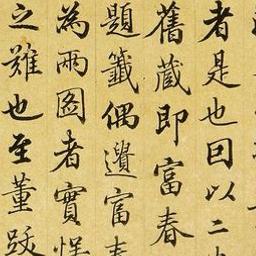 者是也因以二
舊藏即富春
題籤偶遺富春
為兩圖者實怪
之難也至董跋